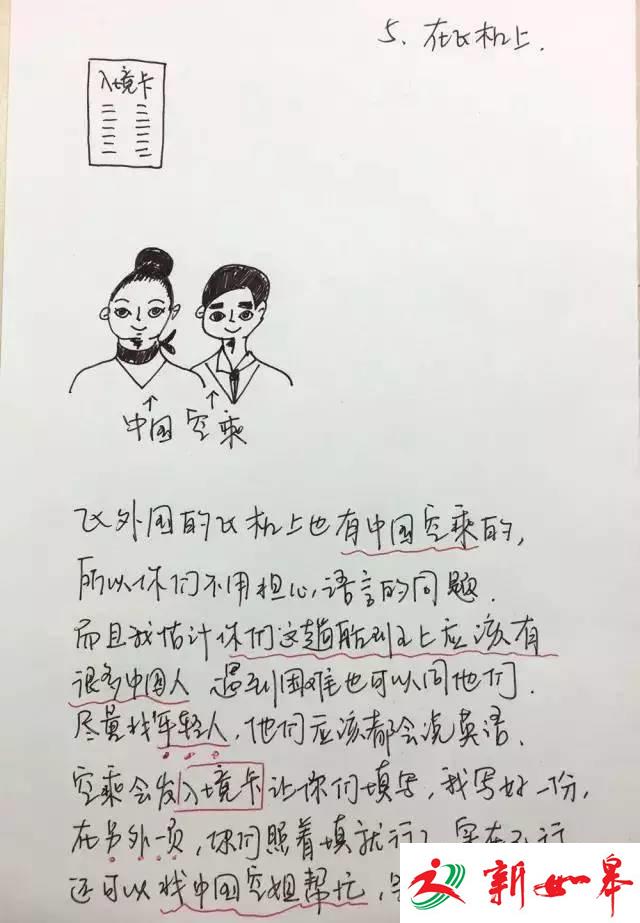 5、在飞机上.
入境卡
中国空乘
飞外国的飞机上也有中国空乘的,
所以你们不用担心语言的问题.
而且我估计你们这趟航班上应该有
很多中国人 遇到困难也可以问他们.
尽量找年轻人, 他们应该都会说英语.
空乘会发入境卡让你们填写, 我写好一份,
在另外一页, 你们照着填就行了 实在不行
还可以找中国空姐帮忙,
新如皋